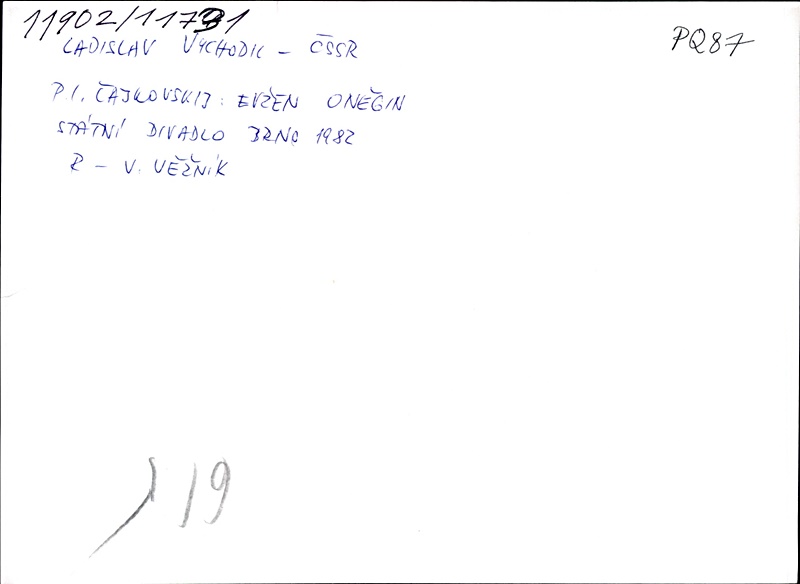 11902/11731
PQ87
LADISLAV VYCHODIL – ČSSR
P. I. ČAJKOVSKIJ: EVŽEN ONĚGIN
STÁTNÍ DIVADLO BRNO 1982
R – V. VĚŽNÍK
19